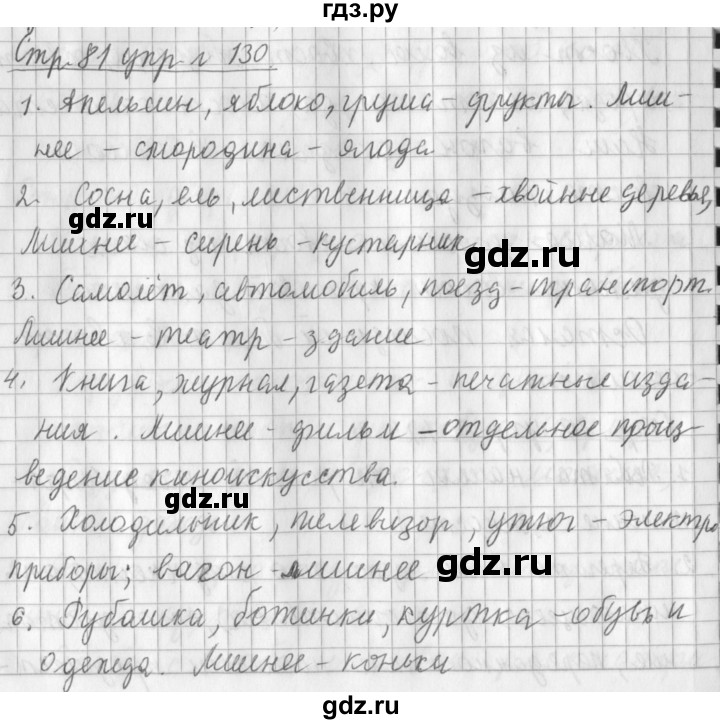 гдз.ру
Стр. 81 упр. г 130.
1. Апельсин, яблоко, груша – фрукты. Лиш-
нее – смородина – ягода
2. Сосна, ель, лиственница – хвойные деревья,
gdz.ru
gdz.ru
Лишнее – сирень – кустарник
3. Самолёт, автомобиль, поезд – транспорт.
Лишнее – театр – здание
4. Книга, журнал, газета – печатные изда-
ния. Лишнее – фильм – отдельное произ-
ведение киноискусства.
gdz.ru
5. Холодильник, телевизор, утюг – электро
приборы; вагон – лишнее
gdz.ru
6. Рубашка, ботинки, куртка – обувь и
одежда. Лишнее – коньки
gdz.ru